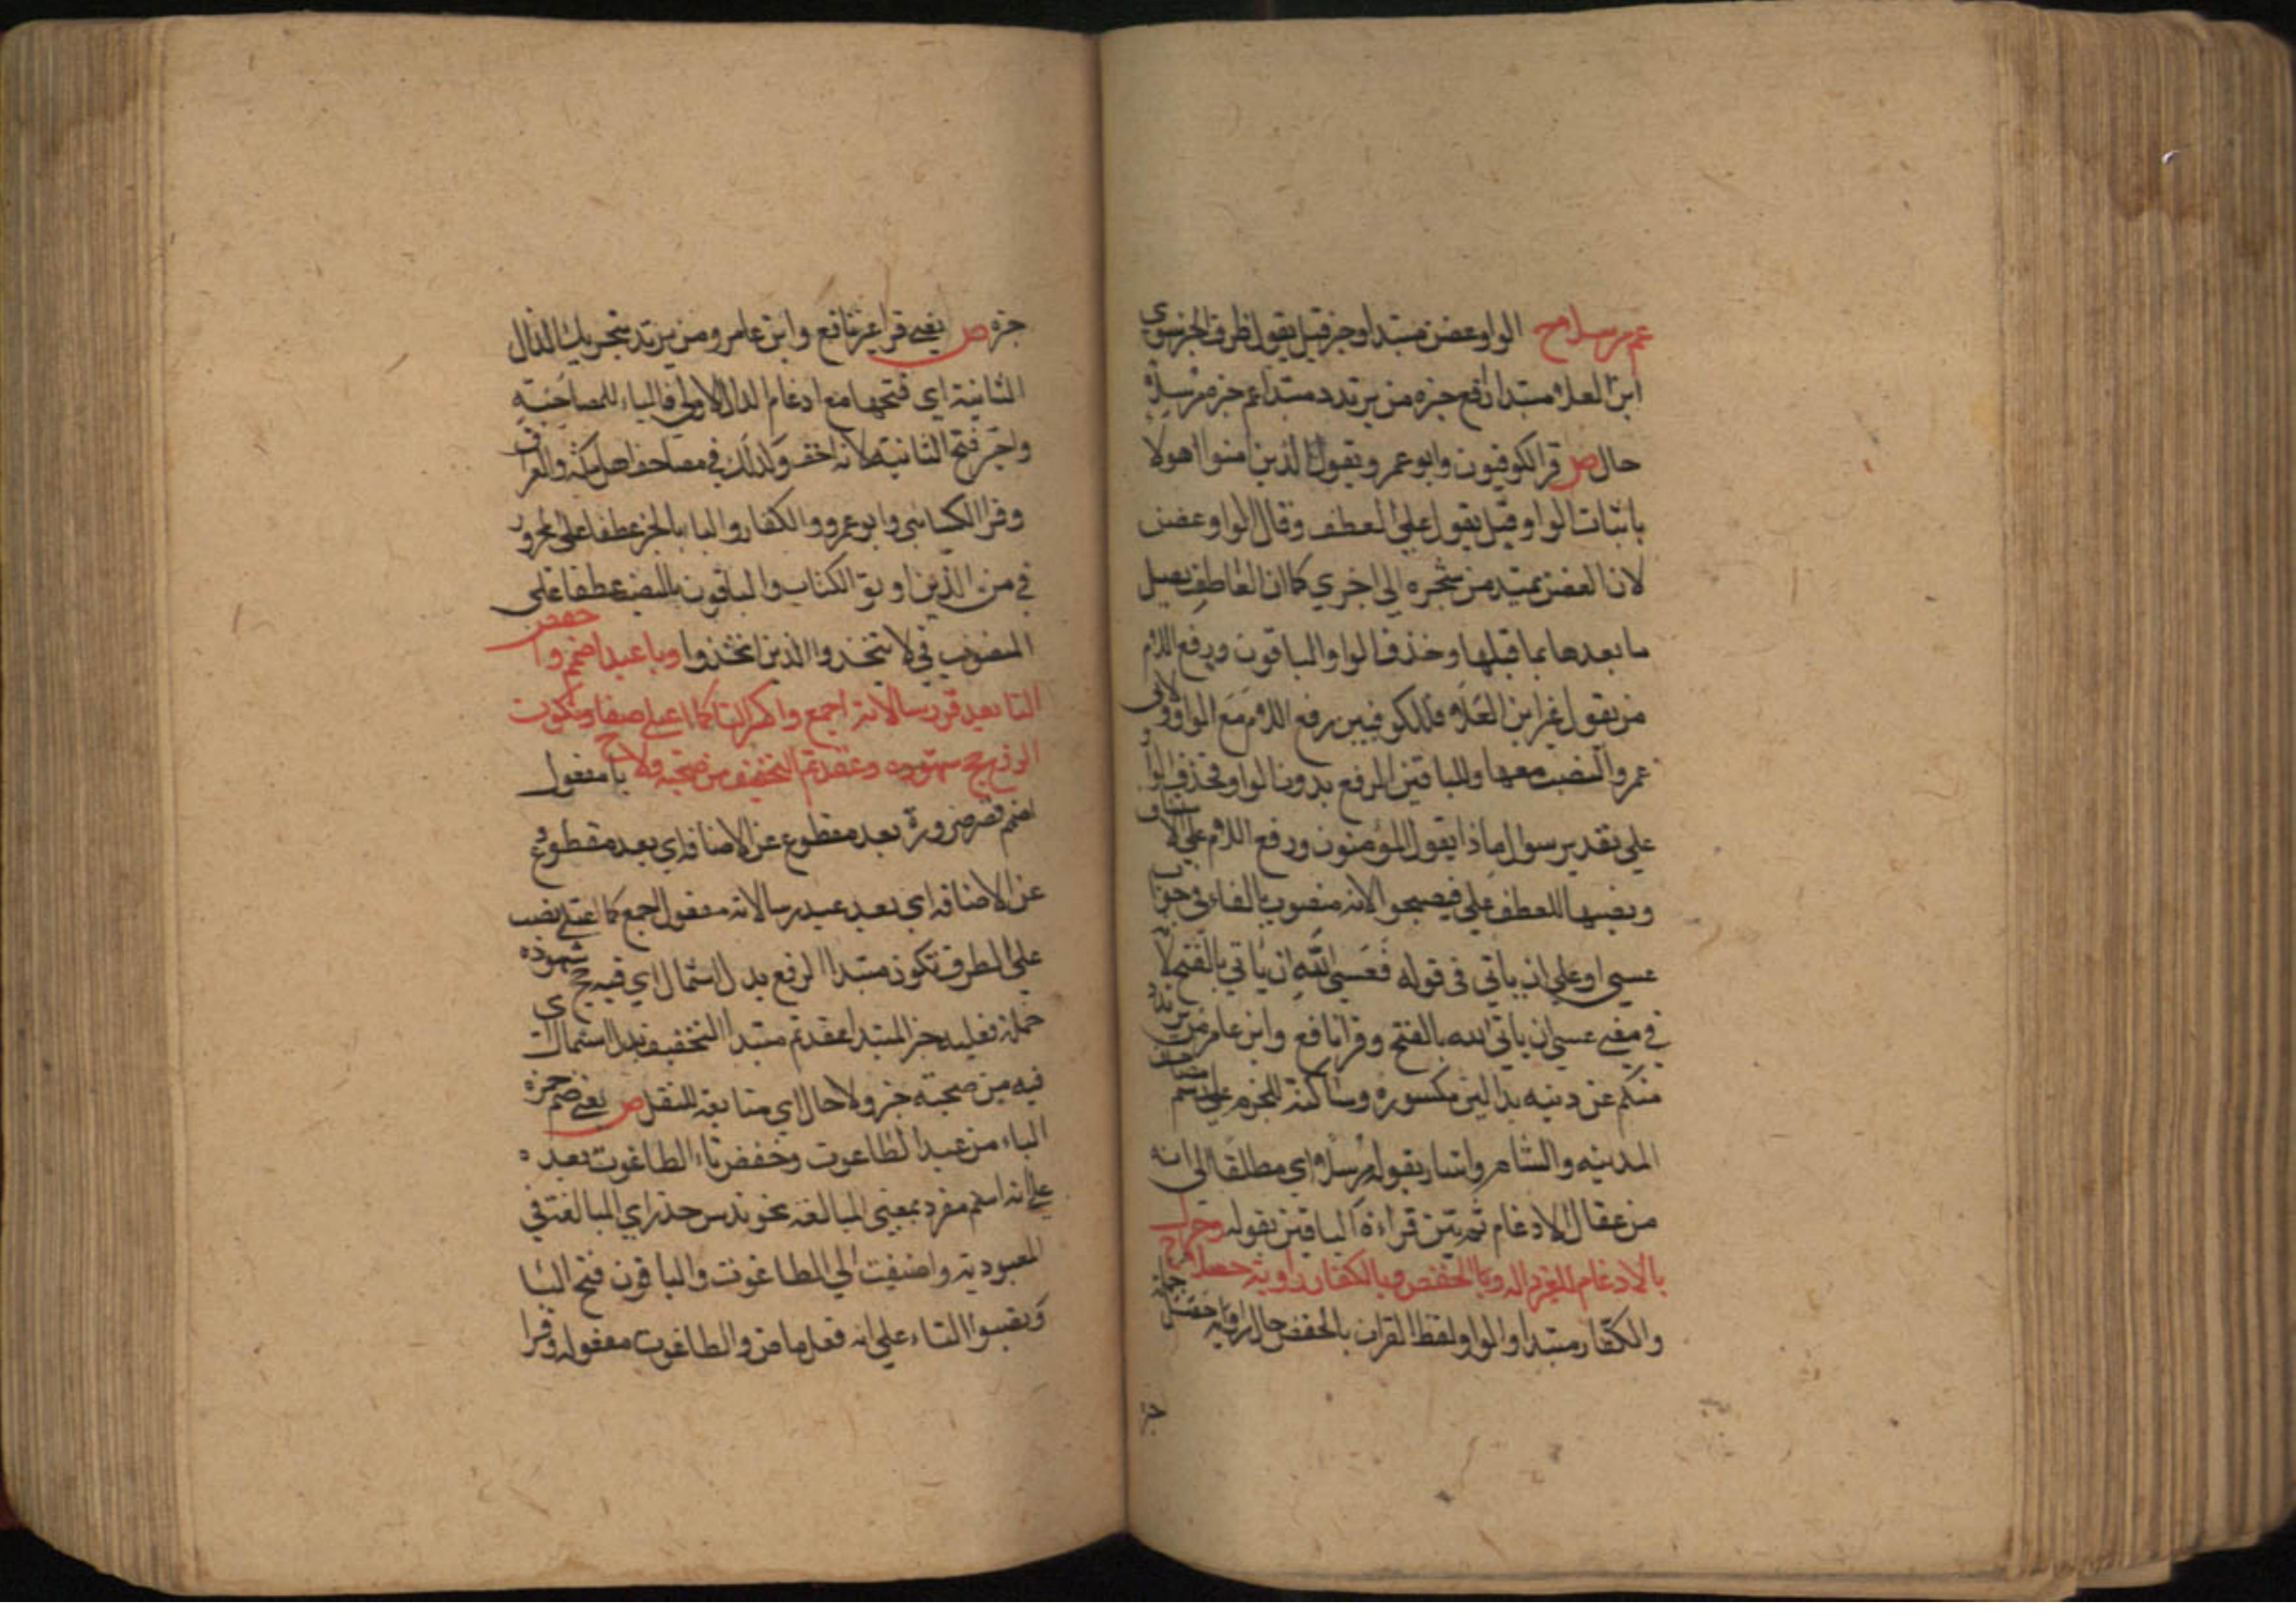 عم مرسلا ح الواو غصن مبتدا وخبر قبل يقول ظرف الخبر سوى
ابن العلا مبتدا رافع خبره من يرتدد مبتدا عم خبره مرسلا
حال ص قرا الكوفيون وابو عمرو ويقول الذين امنوا اهولا
باثبات الواو قبل يقول على العطف وقال الواو غصن
لان الغصن يمتد من شجره الى اخري كما ان العاطف يصل
ما بعدها بما قبلها وحذف الواو الباقون ورفع اللام
من يقول غير ابن العلا فللكوفيين رفع اللام مع الواو ولابى
عمرو النصب معها وللباقين الرفع بدون الواو فحذف الواو
علي تقدير سوال ماذا يقول المؤمنون ورفع اللام علي الاستيناف
ونصبها للعطف علي فيصبحوا لانه منصوب بالفاء في جواب
عسي او علي ان ياتي في قوله فعسى الله ان ياتي بالفتح لا
في معنى عسي ان ياتي الله بالفتح وقرا نافع وابن عامر من يرتدد
منكم عن دينه بدالين مكسوره وساكنة للجزم علي رسم
المدينه والشام واشار بقوله مرسلا اي مطلقا الى انه
من عقال الادغام ثم بين قراءة الباقين بقوله وحرك
بالادغام للغير داله وبالخفض والكفار راويه حصلا ح
والكفار مبتدا والواو لفظ القران بالخفض حال راويه حصل
خبره ص يعني قرا غير نافع وابن عامر ومن يرتد بتحريك الدال
الثانية اي فتحها مع ادغام الدال الاولى فالباء للمصاحبة
واختير فتح الثانية لانه اخف وكذلك في مصاحف اهل مكة والعراق
وقرا الكسائي وابو عمرو والكفار والبا بالجر عطفا على مجرور
في من الذين اوتوا الكتاب والباقون بالنصب عطفا على
المنصوب في لا تتخذوا الذين اتخذوا وبا عبد اضمم واخفض
التا بعد فز رسالاته اجمع واكسر التا كما اعتلي صفا وتكون
الرفع حج شهوده وعقدتم التخفيف من صحبة ولا ح با مفعول
اضمم قصر ضرورة بعد مقطوع عن الاضافه اي بعد مقطوع
عن الاضافه اي بعد عبد رسالاته مفعول اجمع كما اعتلي نصب
على الظرف تكون مبتدا الرفع بدل اشتمال اي فيه حج شهوده
جملة فعليه خبر المبتدا عقدتم مبتدا التخفيف بدل اشتمال اى
فيه من صحبته خبر ولا حال اي متابعة للنقل ص يعني ضم حمزة
الباء من عبد الطاغوت وخفض تاء الطاغوت بعده
علي انه اسم مفرد بمعنى المبالغه نحو ندس حذر اي المبالغة في
العبودية واضيفت الي الطاغوت والباقون فتح البا
ونصبوا التاء علي انه فعل ماض والطاغوت مفعوله وقرا